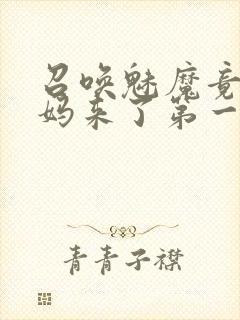 召唤魅魔竟
妈来了第一
青青子襟